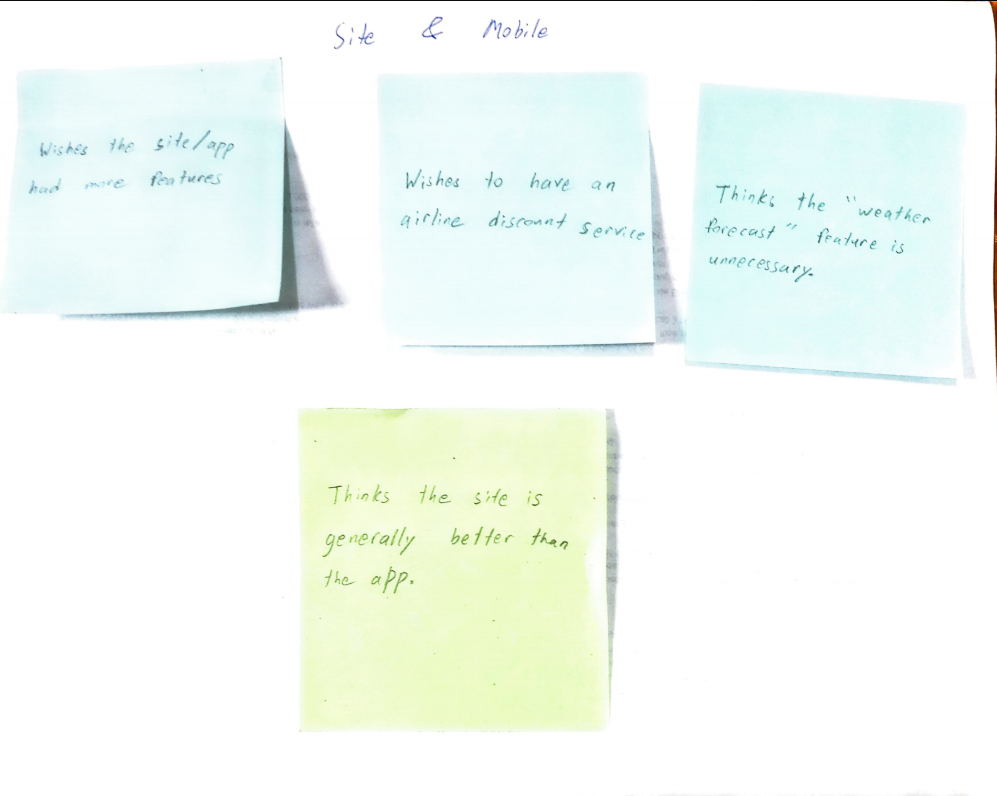 Site & Mobile
Wishes the site/app
had more features
Wishes to have an
airline discount service
Thinks the "weather
forecast" feature is
unnecessary.
Thinks the site is
generally better than
the app.